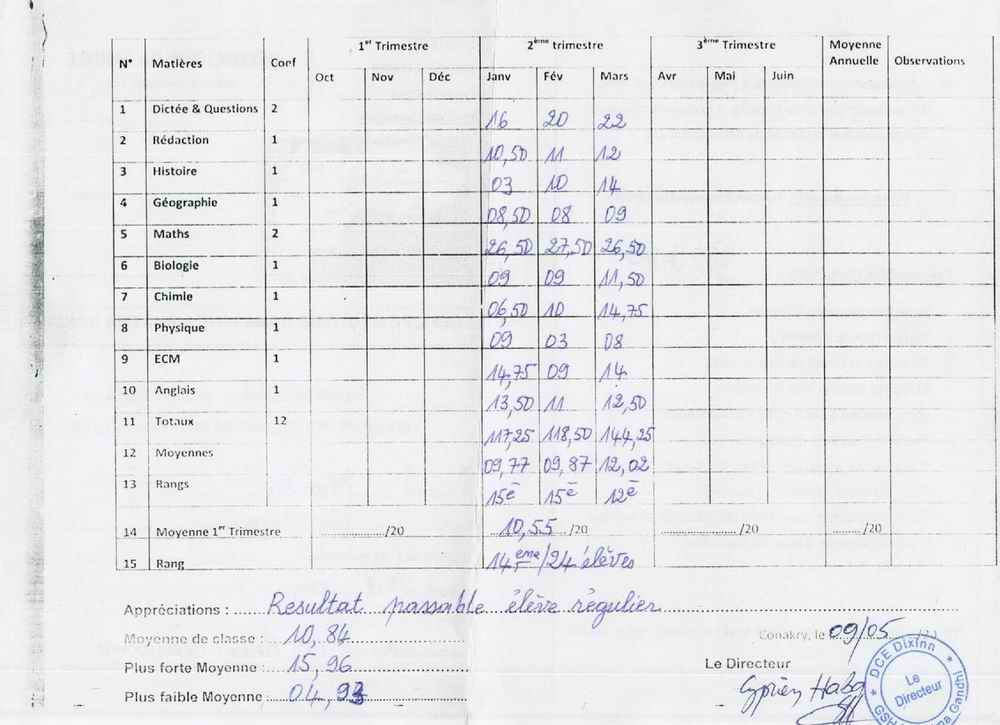 1er Trimestre 2ème trimestre 3ème Trimestre Moyenne Annuelle Observations
N° Matières Coef Oct Nov Déc Janv Fév Mars Avr Mai Juin
1 Dictée & Questions 2 16 20 22
2 Rédaction 1 10,50 11 12
3 Histoire 1 03 10 14
4 Géographie 1 08,50 08 09
5 Maths 2 26,50 27,50 26,50
6 Biologie 1 09 09 11,50
7 Chimie 1 06,50 10 14,75
8 Physique 1 09 03 08
9 ECM 1 14,75 09 14
10 Anglais 1 13,50 11 12,50
11 Totaux 12 117,25 118,50 144,25
12 Moyennes 09,77 09,87 12,02
13 Rangs 15è 15è 12è
14 Moyenne 1er Trimestre ............/20 10,55 /20 ............/20 ......../20
15 Rang 14ème/24 élèves
Appréciations : Resultat passable élève régulier
Moyenne de classe : 10,84
Conakry, le 09/05
Plus forte Moyenne : 15,96
Le Directeur
Plus faible Moyenne : 04,93
Cyprien Haba
DCE Dixinn
Le Directeur